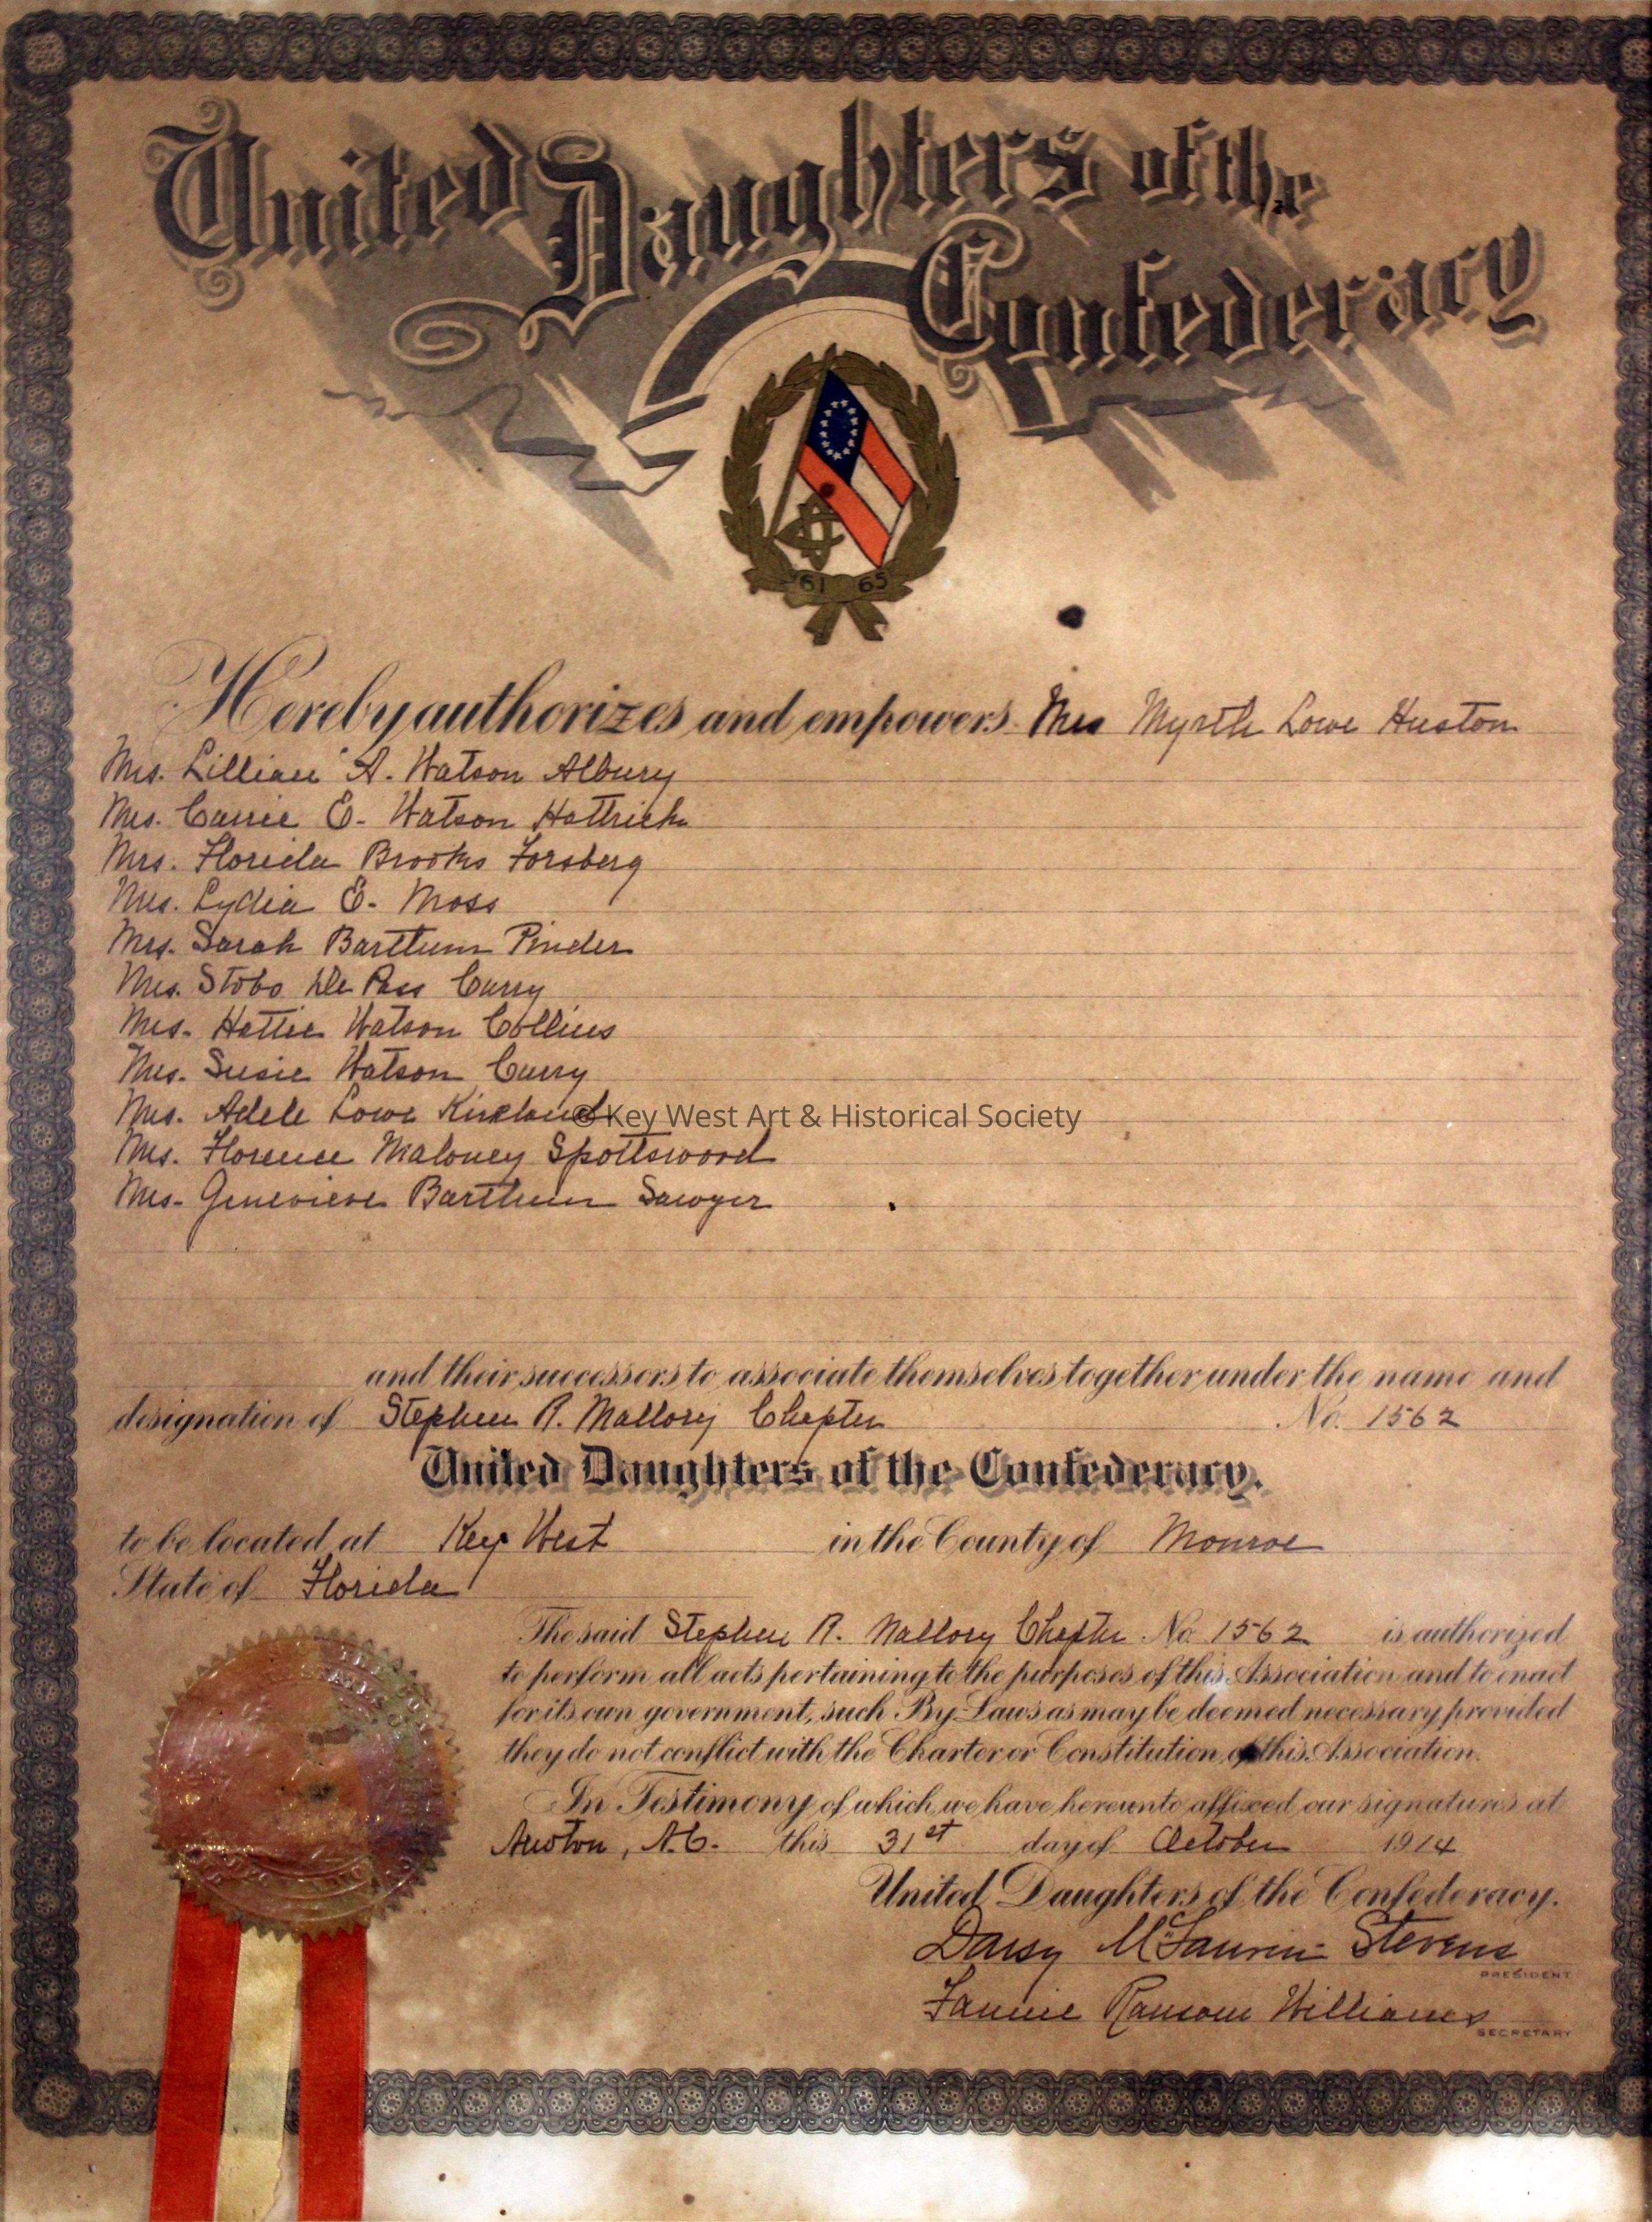 United Daughters of the
Confederacy
'61 65
Hereby authorizes and empowers Mrs Myrtle Lowe Huston
Mrs. Lillian A. Watson Albury
Mrs. Carrie E. Watson Hattrick
Mrs. Florida Brooks Forsberg
Mrs. Lydia E. Moss
Mrs. Sarah Bartlum Pinder
Mrs. Stobo De Pass Curry
Mrs. Hattie Watson Collins
Mrs. Susie Watson Curry
Mrs. Adele Lowe Kirkland
© Key West Art & Historical Society
Mrs. Florence Maloney Spottswood
Mrs. Genevieve Bartlum Sawyer
and their successors to associate themselves together under the name and
designation of Stephen R. Mallory Chapter No. 1562
United Daughters of the Confederacy.
to be located at Key West in the County of Monroe
State of Florida
The said Stephen R. Mallory Chapter No. 1562 is authorized
to perform all acts pertaining to the purposes of this Association and to enact
for its own government, such By-Laws as may be deemed necessary provided
they do not conflict with the Charter or Constitution of this Association.
In Testimony of which we have hereunto affixed our signatures at
Newton, N.C. this 31st day of October 1914
United Daughters of the Confederacy.
Daisy McLaurin Stevens
PRESIDENT
Fannie Ransom Williams
SECRETARY